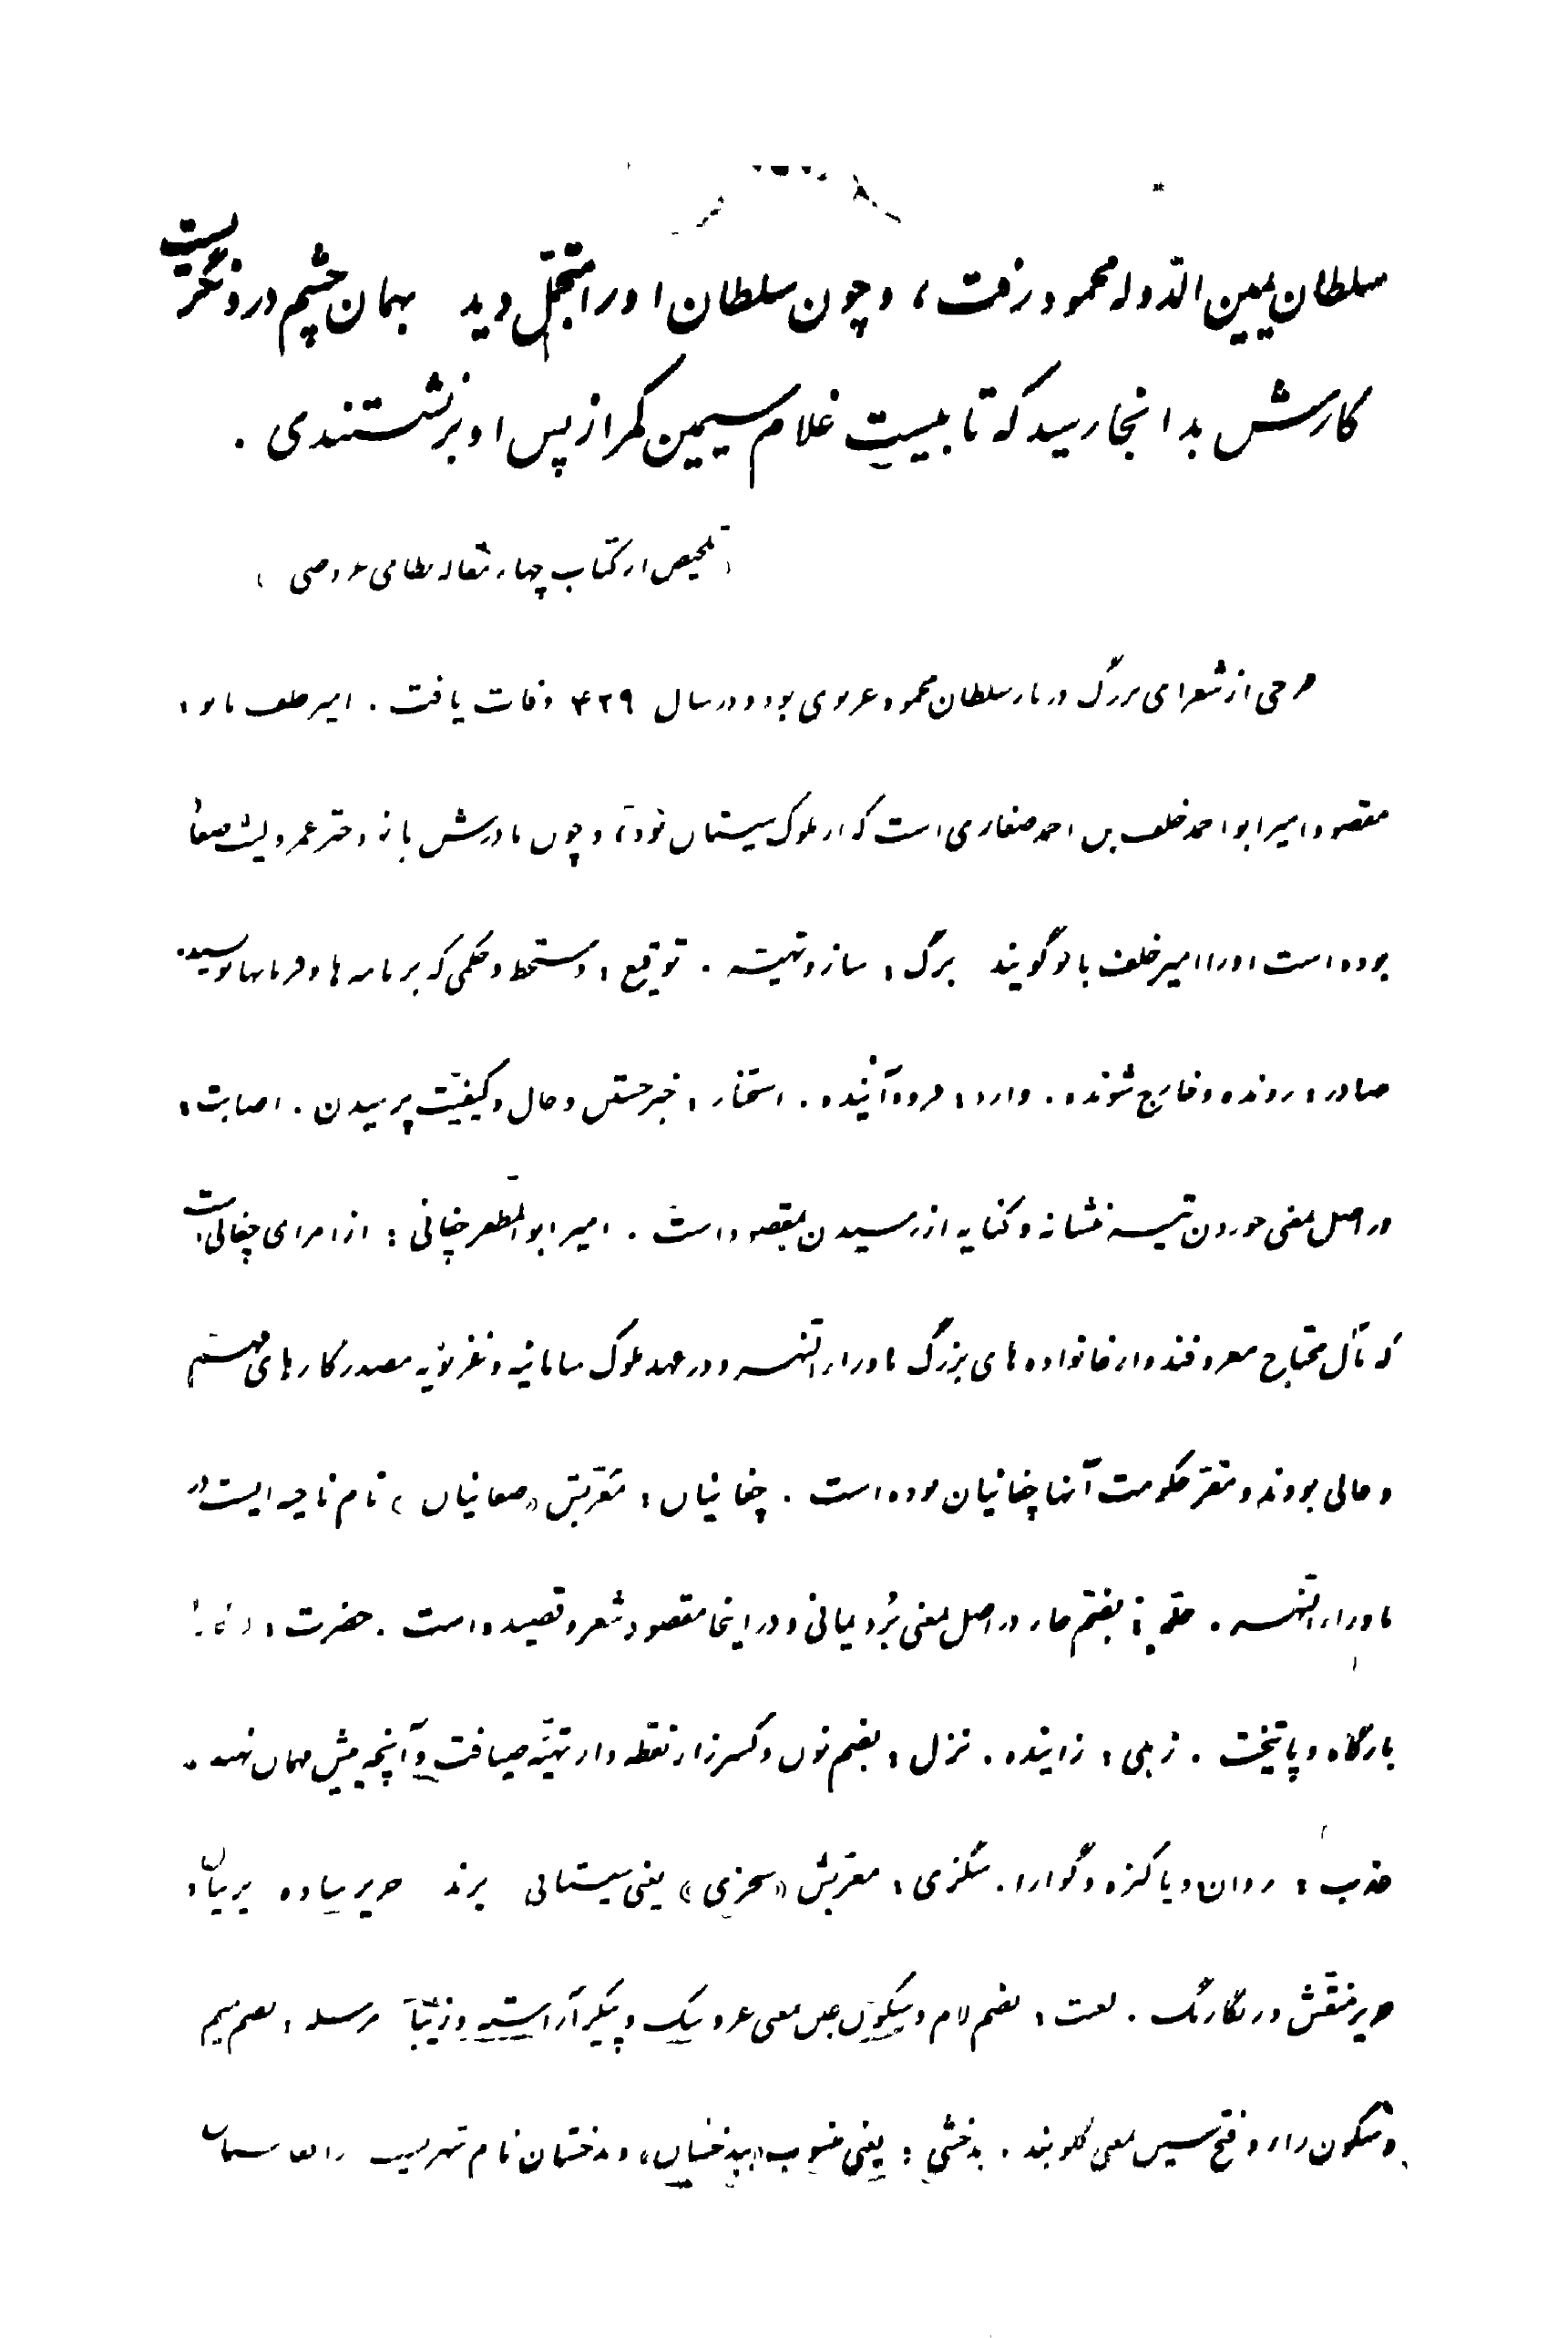 سلطان یمین الدوله محمود رفت، و چون سلطان او را متجمل دید بهمان چشم درو نگریست
کارش بدانجا رسید که تا بیست غلام سیمین کمر از پس او برنشستندی .
(تلخیص از کتاب چهار مقاله نظامی عروضی)
فرخی از شعرای بزرگ دربار سلطان محمود غزنوی بود و در سال ۴۲۹ وفات یافت . امیر خلف بانو :
مقصود امیر ابو احمد خلف بن احمد صفاری است که از ملوک سیستان بود، و چون مادرش بانو دختر عمرو لیث صفار
بوده است او را امیر خلف بانو گویند برگ : ساز و تهیّه . توقیع : دستخط و حکمی که بر نامه ها و فرمانها نویسند
صادر : رونده و خارج شونده . وارد : فرود آینده . استخبار : خبر جستن و حال و کیفیّت پرسیدن . اصابت :
در اصل بمعنی خوردن تیر به نشانه و کنایه از رسیدن بمقصود است . امیر ابو المظفر چغانی : از امرای چغانی است
که بآل محتاج معروفند و از خانواده های بزرگ ماوراء النهر و در عهد ملوک سامانیه و غزنویّه مصدر کارهای مهمّ
و عالی بودند و مقرّ حکومت آنها چغانیان بوده است . چغانیان : معرّبش «صغانیان» نام ناحیه ایست در
ماوراء النهر . حلّه : بضمّ حاء در اصل بمعنی بُرد یمانی و در اینجا مقصود شعر و قصیده است . حضرت :
بارگاه و پایتخت . زهی : زاینده . نزل : بضم نون و کسر زاء نقطه دار تهیّه ضیافت و آنچه پیش مهمان نهند .
عذب : روان و پاکیزه و گوارا . سگزی : معرّبش «سجزی» یعنی سیستانی پرند حریر ساده پرنیان :
حریر منقّش و رنگارنگ . لعبت : بضم لام و سکون عین بمعنی عروسک و پیکر آراسته و زیبا مرسله : بضم میم
و سکون راء و فتح سین بمعنی گلوبند . بدخشی : یعنی منسوب «ببدخشان» و بدخشان نام شهریست